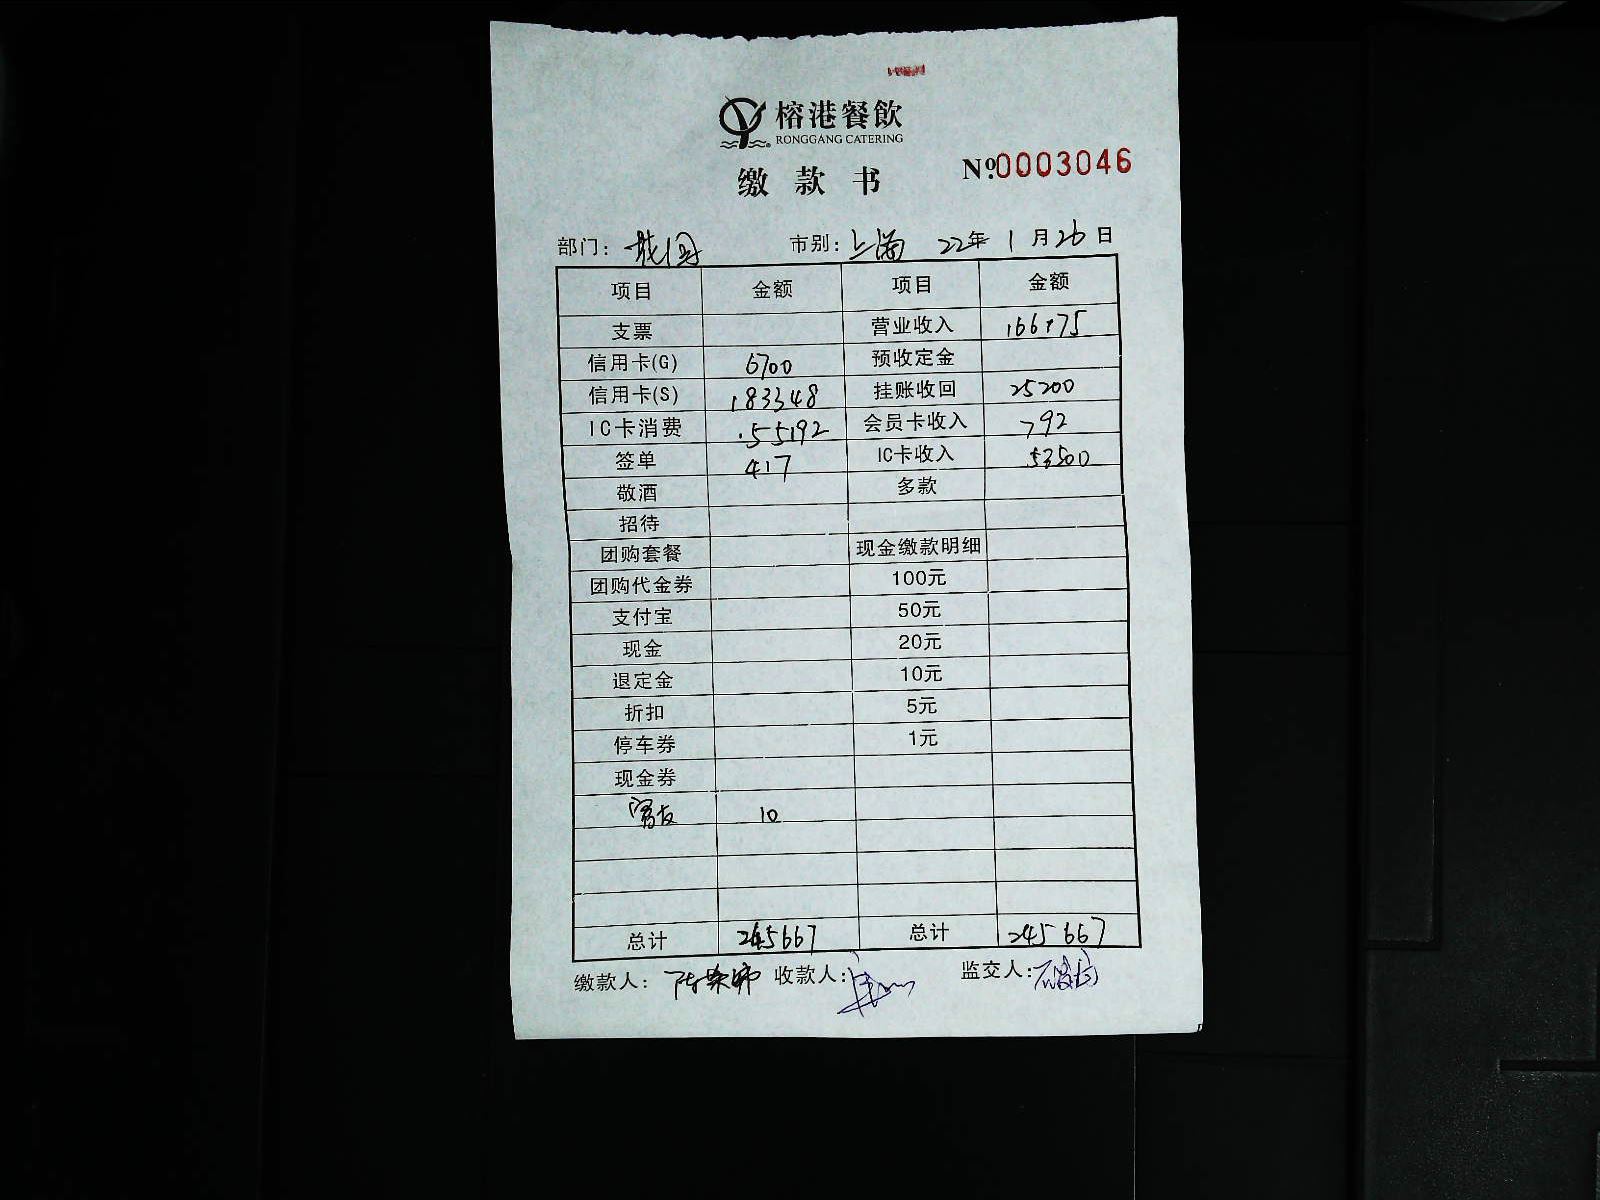 榕港餐飲
RONGGANG CATERING
缴款书 №0003046
部门： 市别：上海 22年 1月26日
项目 金额 项目 金额
支票 营业收入 166175
信用卡(G) 6700 预收定金
信用卡(S) 183348 挂账收回 25200
IC卡消费 55192 会员卡收入 792
签单 417 IC卡收入 53500
敬酒 多款
招待
团购套餐 现金缴款明细
团购代金券 100元
支付宝 50元
现金 20元
退定金 10元
折扣 5元
停车券 1元
现金券
10
总计 245667 总计 245667
缴款人： 收款人： 监交人：